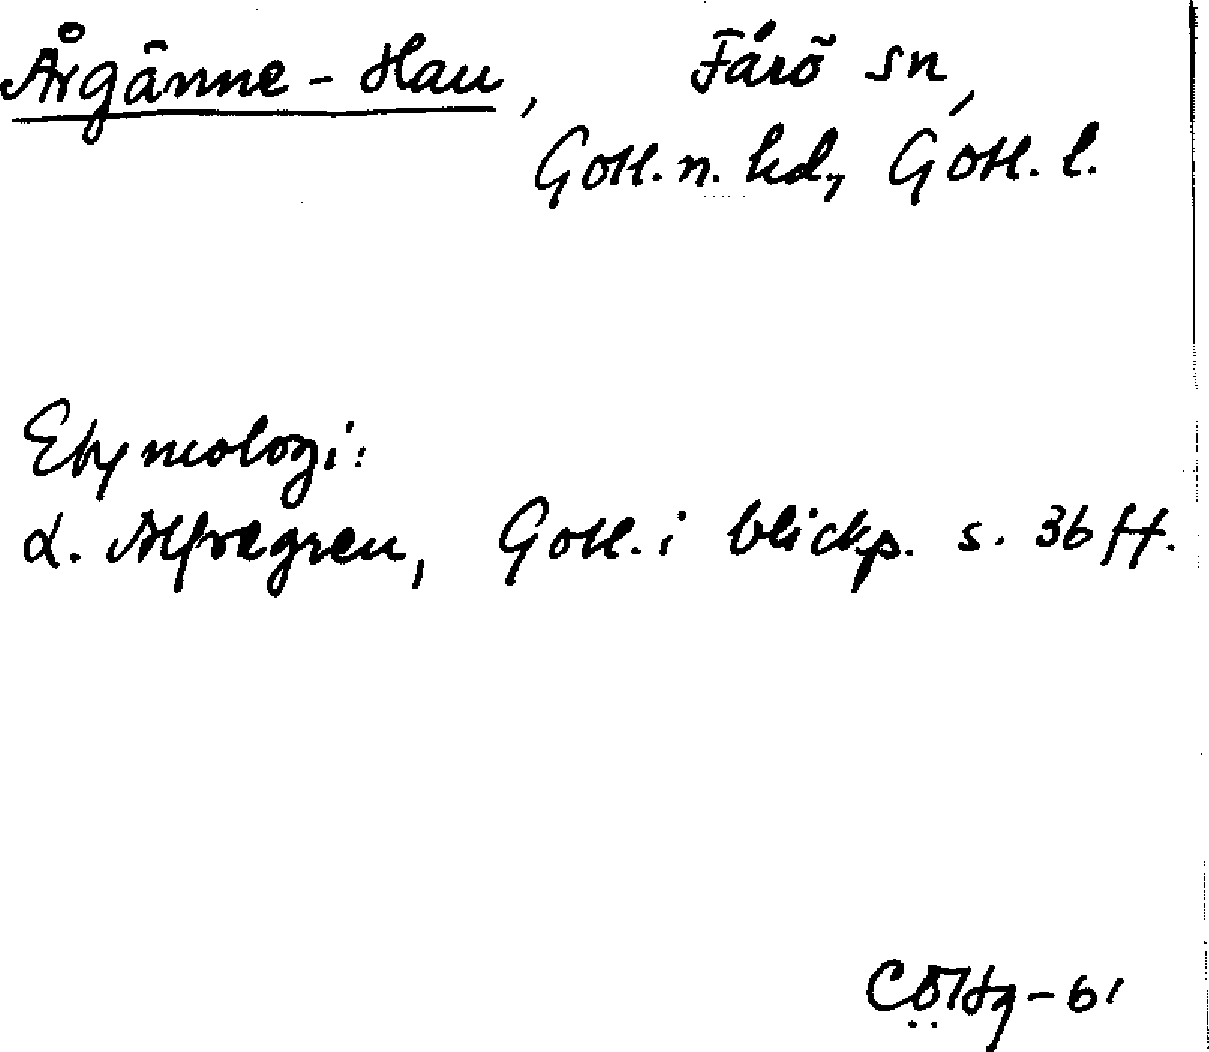 Årgänne-Hau, Fårö sn,
Gotl. n. hd, Gotl. l.
Etymologi:
L. Alfvegren, Gotl. i blickp. s. 36 ff.